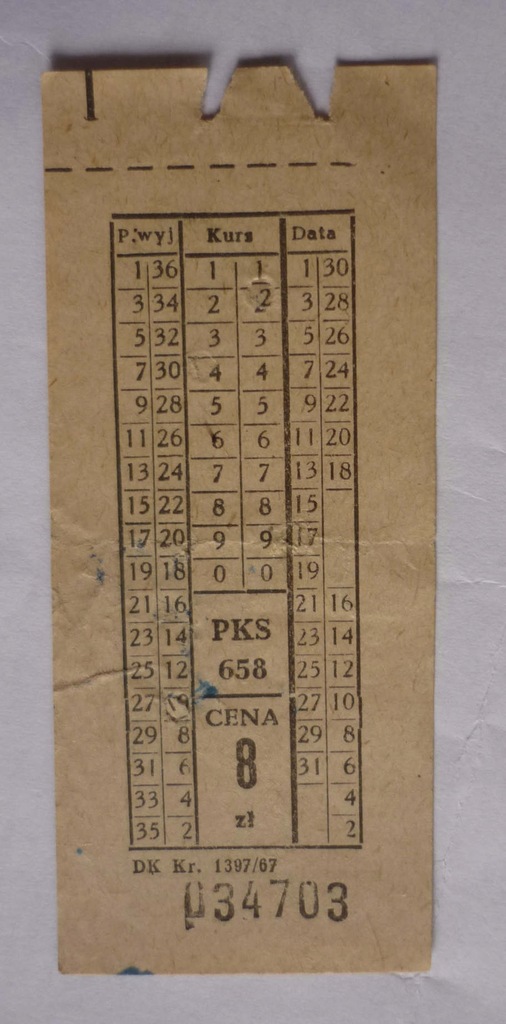 P.wyj Kurs Data
1 36 1 1 1 30
3 34 2 2 3 28
5 32 3 3 5 26
7 30 4 4 7 24
9 28 5 5 9 22
11 26 6 6 11 20
13 24 7 7 13 18
15 22 8 8 15
17 20 9 9 17
19 18 0 0 19
21 16 21 16
23 14 PKS 23 14
25 12 658 25 12
27 27 10
29 8 CENA 29 8
31 6 8 31 6
33 4 4
35 2 zł 2
DK Kr. 1397/67
034703